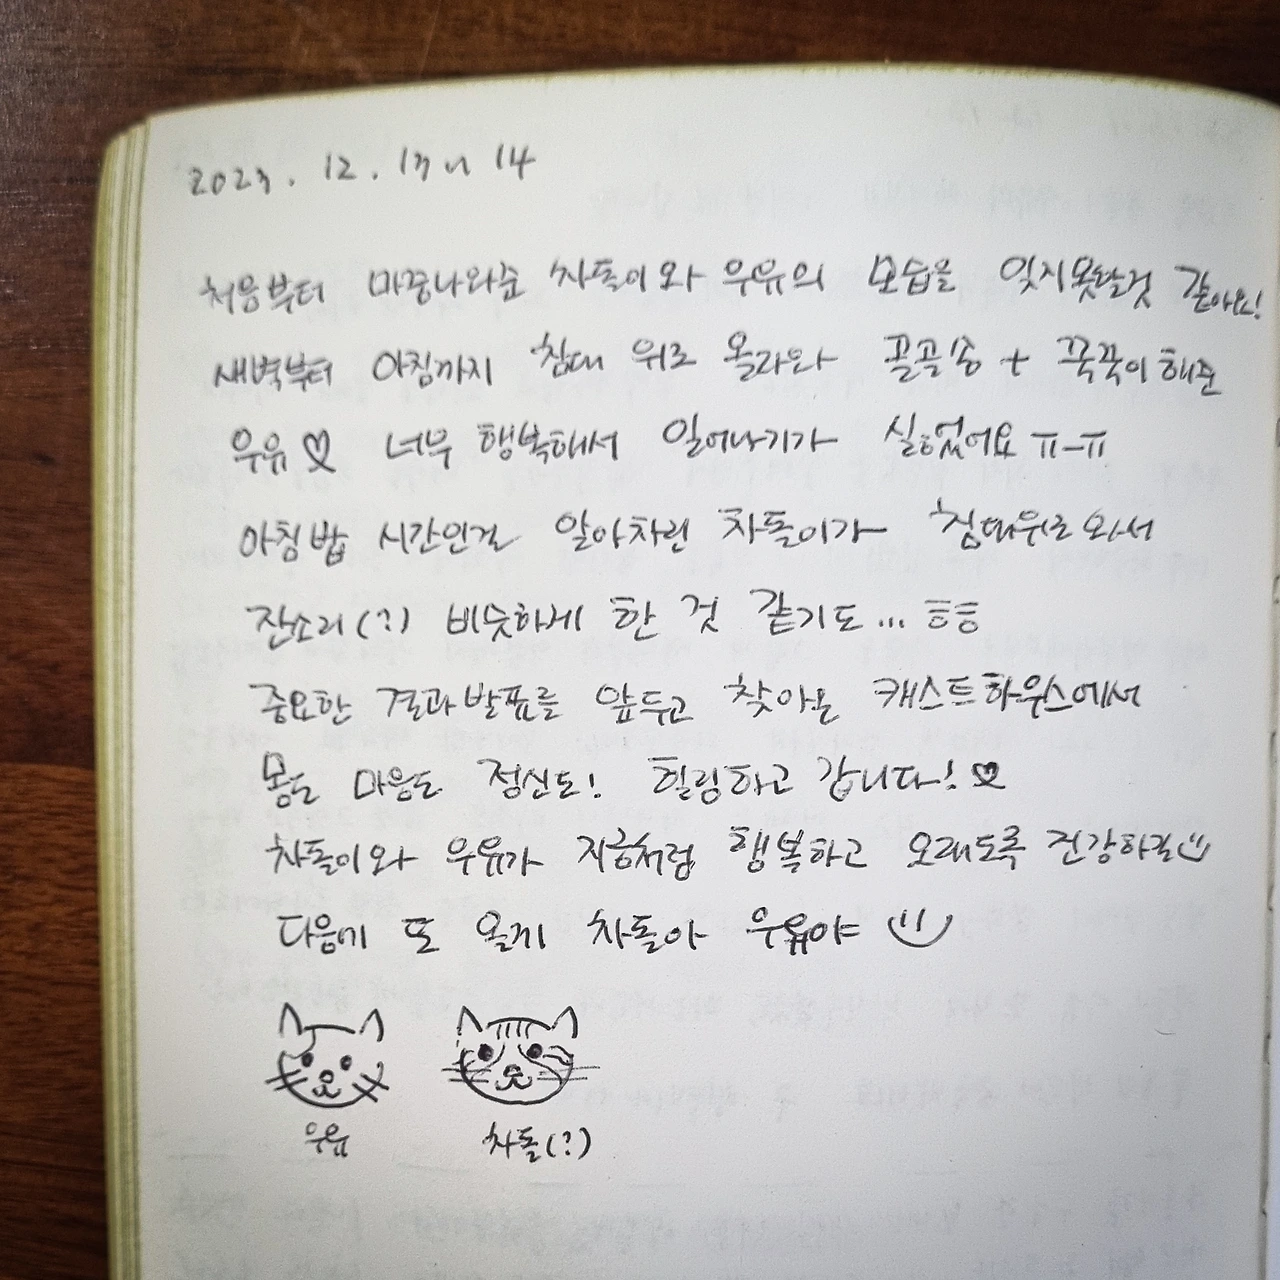 2023. 12. 13 ~ 14
처음부터 마중나와준 차돌이와 우유의 모습을 잊지못할것 같아요!
새벽부터 아침까지 침대 위로 올라와 골골송 + 꾹꾹이 해준
우유♡ 너무 행복해서 일어나기가 싫었어요 ㅠ-ㅠ
아침밥 시간인걸 알아차린 차돌이가 침대위로 와서
잔소리(?) 비슷하게 한 것 같기도... ㅎㅎ
중요한 결과발표를 앞두고 찾아온 캐스트하우스에서
몸도 마음도 정신도! 힐링하고 갑니다!♡
차돌이와 우유가 지금처럼 행복하고 오래도록 건강하길
다음에 또 올게 차돌아 우유야
우유
차돌(?)